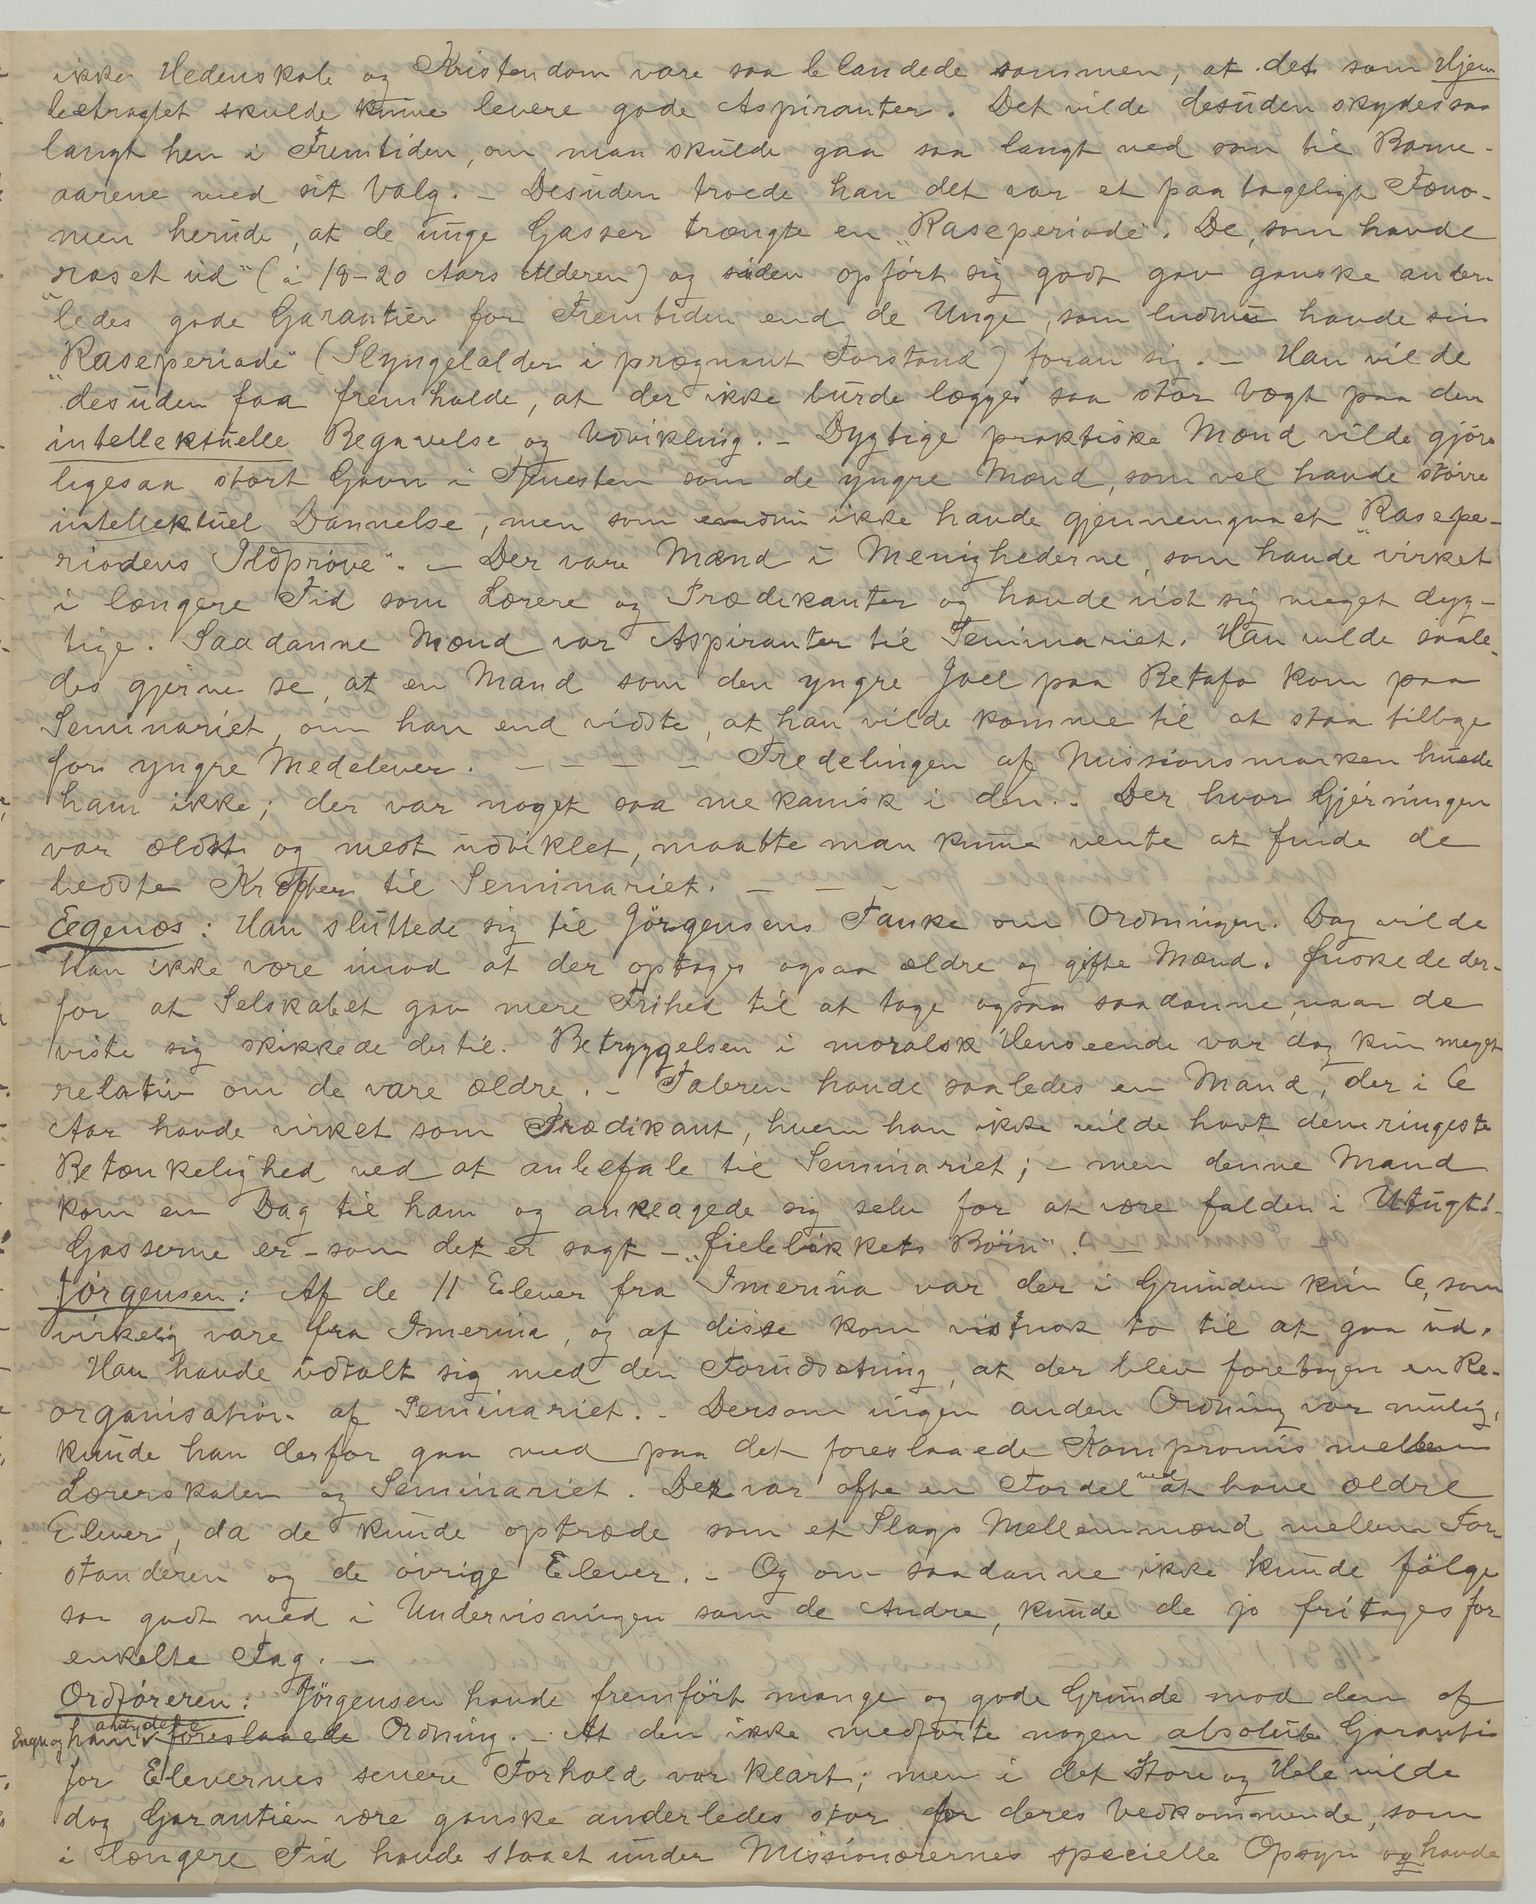 ikke Hedenskab og Kristendom vare saa blandede sammen, at det som Hjem
betragtet skulde kunne levere gode Aspiranter. Det vilde desuden skydes saa
langt hen i Fremtiden, om man skulde gaa saa langt ned som til Barne-
aarene med sit Valg. – Desuden troede han det var et paatageligt Fæno-
men herude, at de unge Gasser trængte en "Raseperiode". De, som havde
"raset ud" (i 18-20 Aars Alderen) og siden opført sig godt gav ganske ander-
ledes gode Garantier for Fremtiden end de Unge, som endnu havde sin
"Raseperiode" (Slyngelalder i prægnant Forstand) foran sig. – Han vilde
desuden faa fremholde, at der ikke burde lægges saa stor Vægt paa den
intellektuelle Begavelse og Udvikling. – Dygtige praktiske Mænd vilde gjøre
ligesaa stort Gavn i Tjenesten som de yngre Mænd, som vel havde større
intellektuel Dannelse, men som endnu ikke havde gjennemgaaet "Rasepe-
riodens Ildprøve". – Der vare Mænd i Menighederne, som havde virket
i længere Tid som Lærere og Prædikanter og havde vist sig meget dyg-
tige. Saadanne Mænd var Aspiranter til Seminariet. Han vilde saale-
des gjerne se, at en Mand som den yngre Joel paa Betafo kom paa
Seminariet, om han end vidste, at han vilde komme til at staa tilbage
for yngre Medelever. – – – – Tredelingen af Missionsmarken huede
ham ikke; der var noget saa mekanisk i den. – Der hvor Gjerningen
var ældst og mest udviklet, maatte man kunne vente at finde de
bedste Kræfter til Seminariet. – – –
Egenæs: Han sluttede sig til Jörgensens Tanke om Ordningen. Dog vilde
han ikke være imod at der optoges ogsaa ældre og gifte Mænd. Ønskede der-
for at Selskabet gav mere Frihed til at tage ogsaa saadanne, naar de
viste sig skikkede dertil. Betryggelsen i moralsk Henseende var dog kun meget
relativ om de vare ældre. – Taleren havde saaledes en Mand, der i 6
Aar havde virket som Prædikant, hvem han ikke vilde havt den ringeste
Betænkelighed ved at anbefale til Seminariet; – men denne Mand
kom en Dag til ham og anklagede sig selv for at være falden i Utugt! –
Gasserne er – som det er sagt – "Øieblikkets Börn". –
Jörgensen: Af de 11 Elever fra Imerina var der i Grunden kun 6, som
virkelig vare fra Imerina, og af disse kom vistnok to til at gaa ud.
Han havde udtalt sig med den Forudsætning, at der blev foretagen en Re-
organisation af Seminariet. – Dersom ingen anden Ordning var mulig,
kunde han derfor gaa med paa det foreslaaede Kompromis mellem
Lærerskolen og Seminariet. Det var ofte en Fordel ved at have ældre
Elever, da de kunde optræde som et Slags Mellemmænd mellem For-
standeren og de øvrige Elever. – Og om saadanne ikke kunde følge
saa godt med i Undervisningen som de Andre, kunde de jo fritages for
enkelte Fag. –
Ordføreren: Jörgensen havde fremført mange og gode Grunde mod den af
Engh og ham antydede foreslaaede Ordning. – At den ikke medførte nogen absolut Garanti
for Elevernes senere Forhold var klart; men i det Store og Hele vilde
dog Garantien være ganske anderledes stor for deres Vedkommende, som
i længere Tid havde staaet under Missionærernes specielle Opsyn og havde